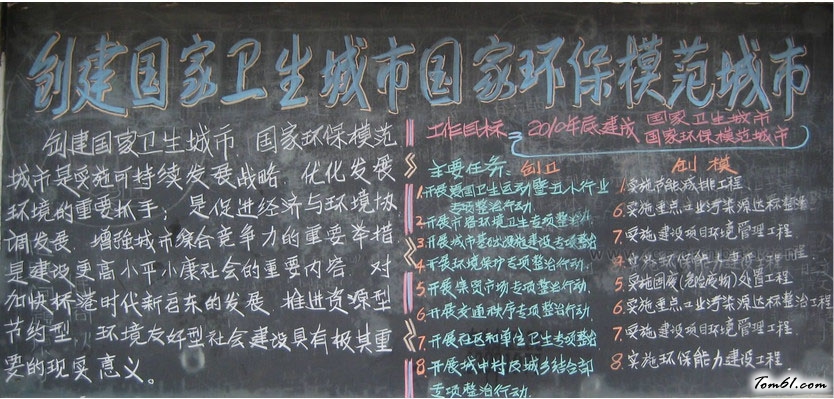 创建国家卫生城市国家环保模范城市
创建国家卫生城市 国家环保模范
城市是实施可持续发展战略,优化发展
环境的重要抓手;是促进经济与环境协
调发展,增强城市综合竞争力的重要举措
是建设更高水平小康社会的重要内容,对
加快桥港时代新启东的发展,推进资源型
节约型、环境友好型社会建设具有极其重
要的现实意义。
工作目标 2010年底建成 国家卫生城市
国家环保模范城市
主要任务: 创卫
1.开展爱国卫生运动暨五小行业
专项整治行动.
2.开展市容环境卫生专项整治.
3.开展城市基础设施建设专项整治
4.开展环境保护专项整治行动.
5.开展集贸市场专项整治行动.
6.开展交通秩序专项整治行动.
7.开展社区和单位卫生专项整治
8.开展城中村及城乡结合部
专项整治行动.
创模
1.实施节能减排工程.
6.实施重点工业污染源达标整治
7.实施建设项目环境管理工程.
5.实施固废(危险废物)处置工程
6.实施重点工业污染源达标整治工程
7.实施建设项目环境管理工程
8.实施环保能力建设工程.
Tom61.com